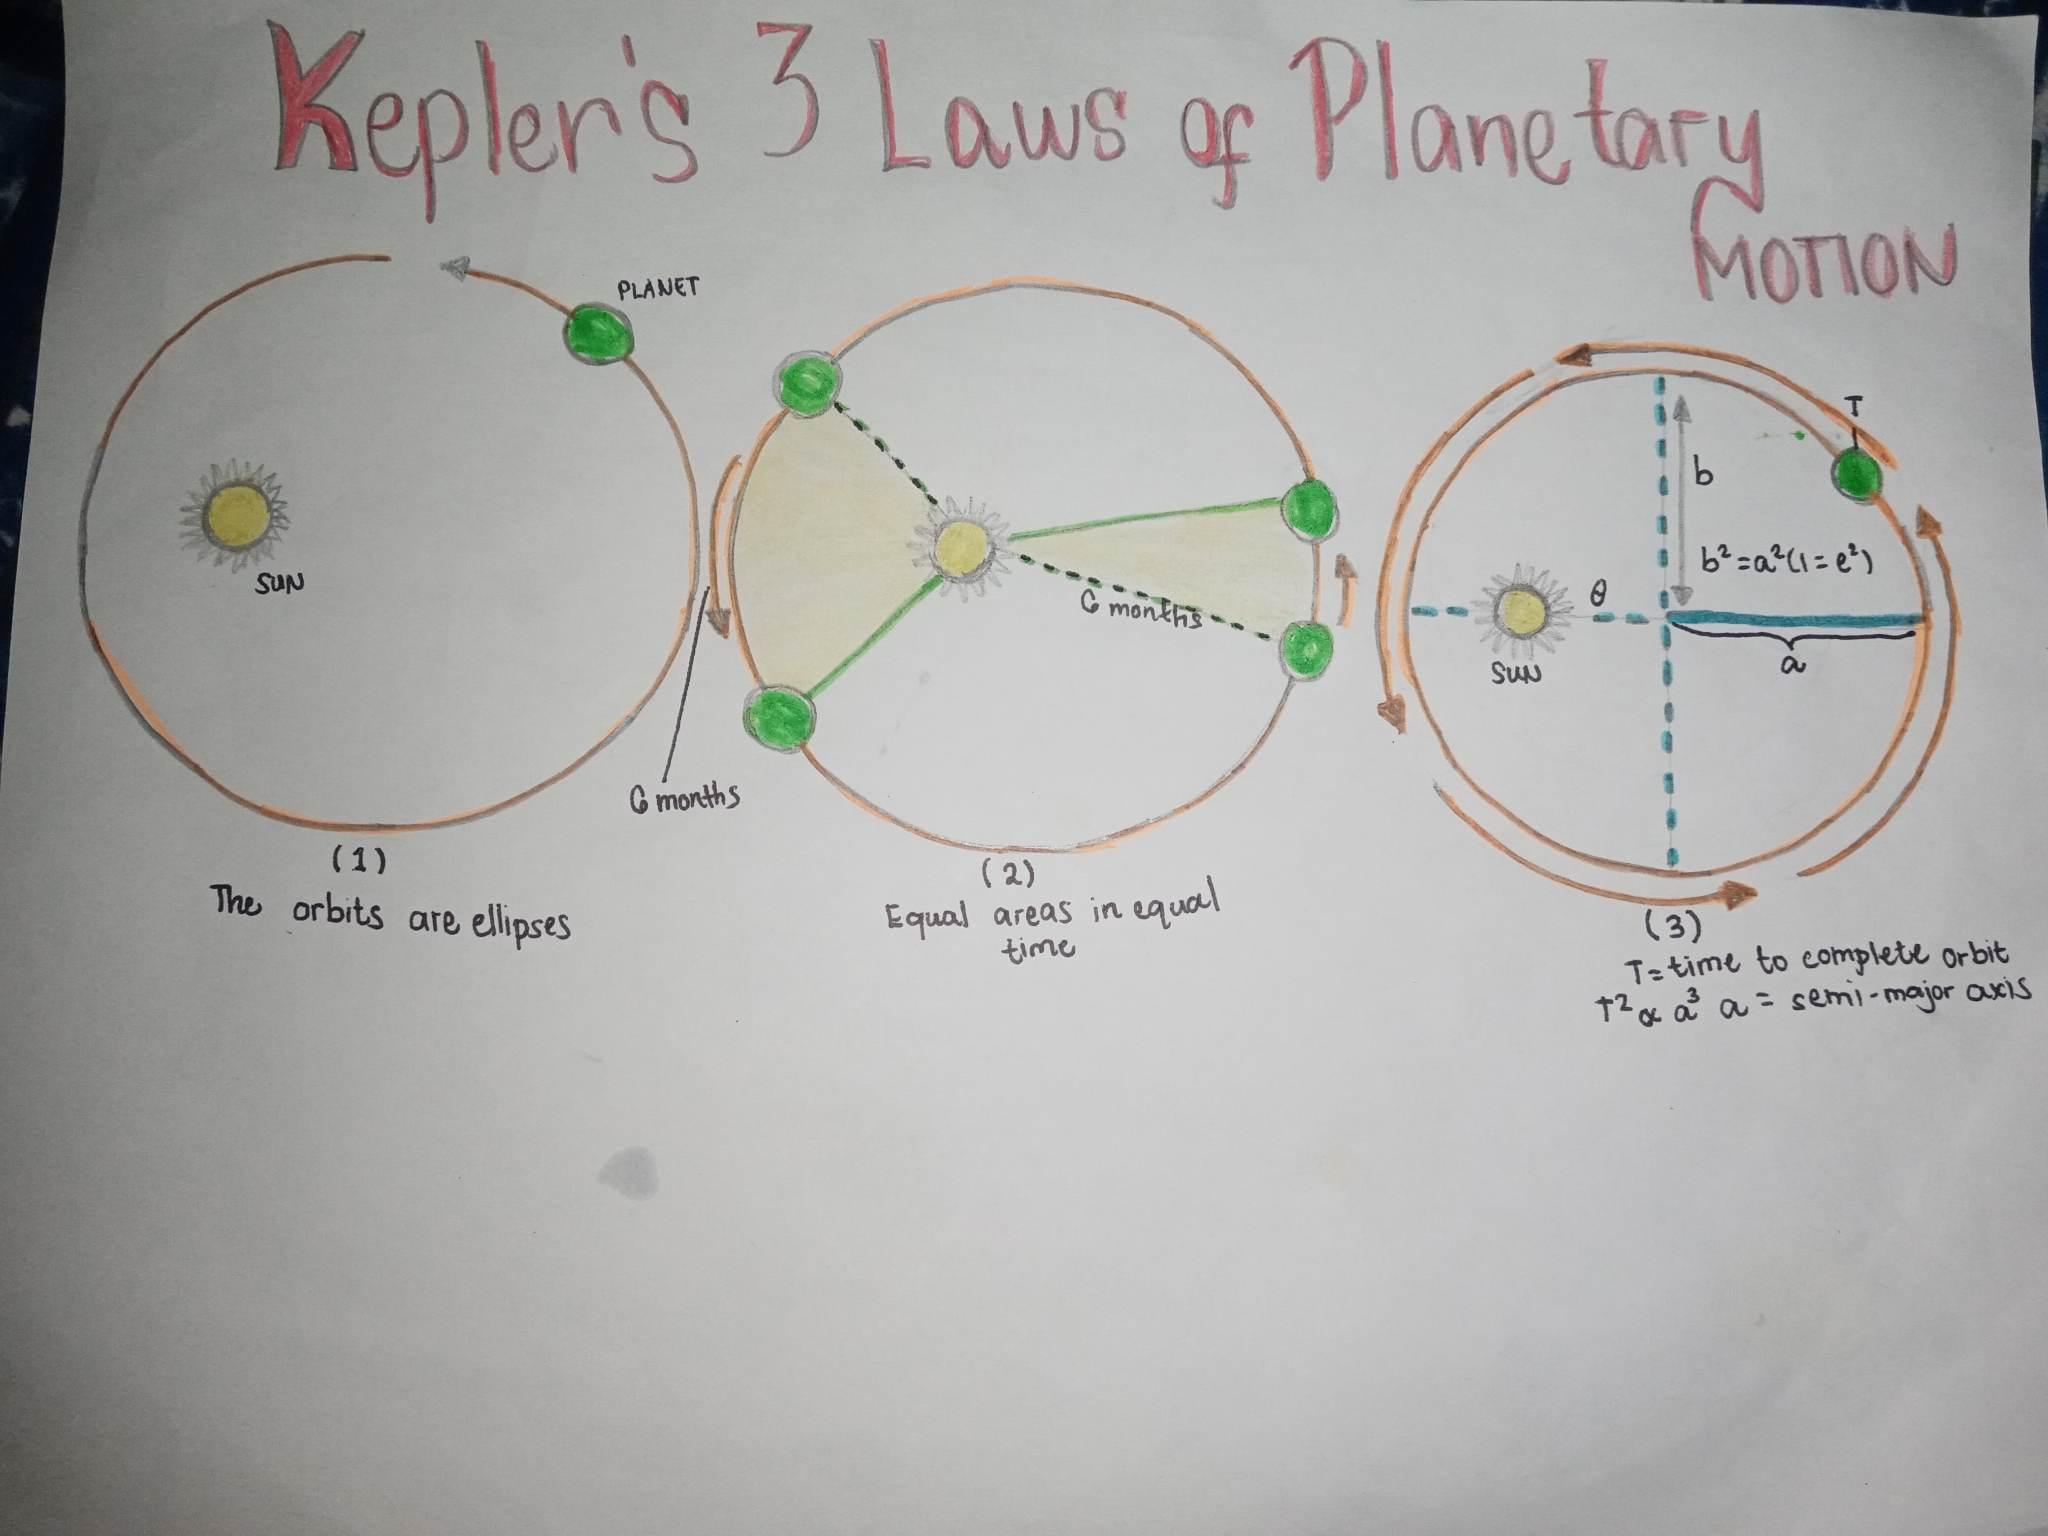 Kepler's 3 Laws of Planetary
MOTION
PLANET
SUN
6 months
(1)
The orbits are ellipses
6 months
(2)
Equal areas in equal
time
T
b
b²=a²(1=e²)
θ
SUN
a
(3)
T=time to complete orbit
T²∝a³ a = semi-major axis